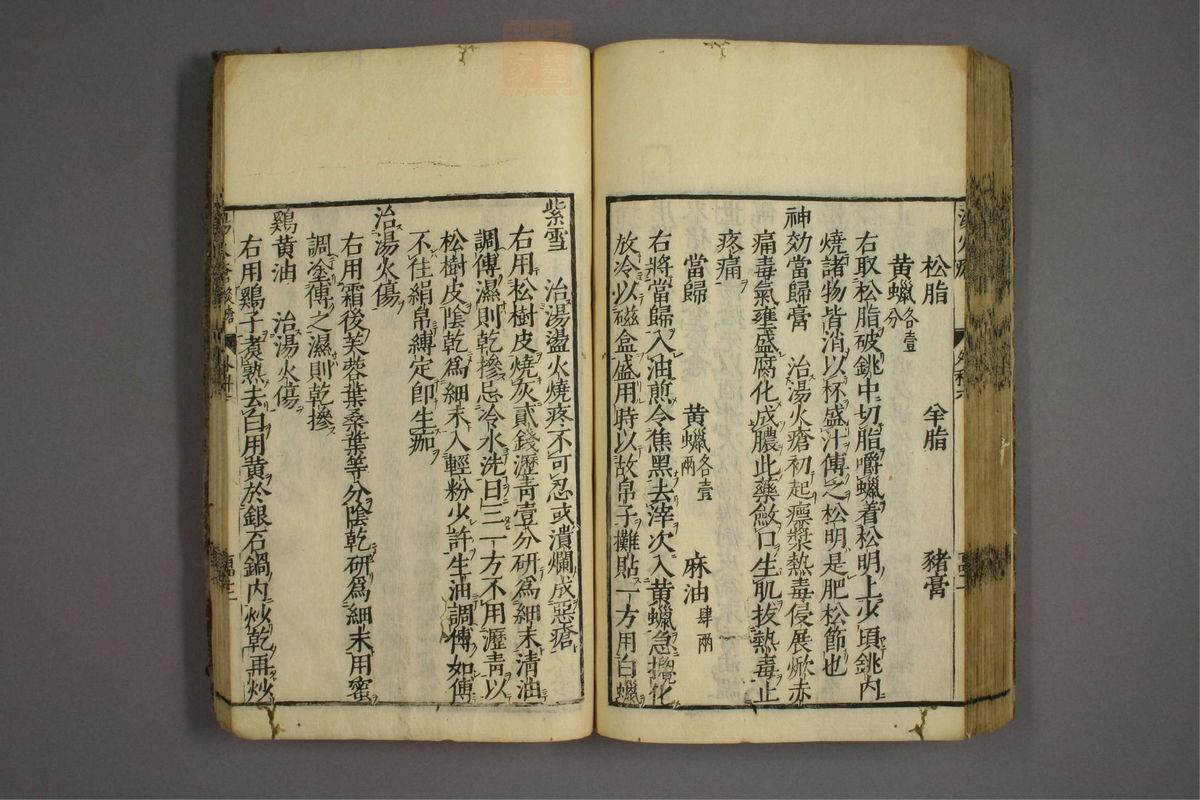 松脂 羊脂 豬膏
黄蠟各壹分
右取松脂破銚中切脂嚼蠟着松明上少頃銚内
燒諸物皆消以杯盛汁傅之松明是肥松節也
神効當歸膏 治湯火瘡初起瘭漿熱毒侵展焮赤
痛毒氣壅盛腐化成膿此藥斂口生肌拔熱毒止
疼痛
當歸 黄蠟各壹兩 麻油肆兩
右將當歸入油煎令焦黑去滓次入黄蠟急攪化
放冷以磁盒盛用時以故帛子攤貼一方用白蠟
紫雪 治湯盪火燒疼不可忍或潰爛成惡瘡
右用松樹皮燒灰貳錢瀝青壹分研爲細末清油
調傅濕則乾摻忌冷水洗日三一方不用瀝青以
松樹皮陰乾爲細末入輕粉少許生油調傅如傅
不住絹帛縛定即生痂
治湯火傷
右用霜後芙蓉葉桑葉等分陰乾研爲細末用蜜
調塗傅之濕則乾摻
鷄黄油 治湯火傷
右用鷄子煮熟去白用黄於銀石鍋内炒乾再炒